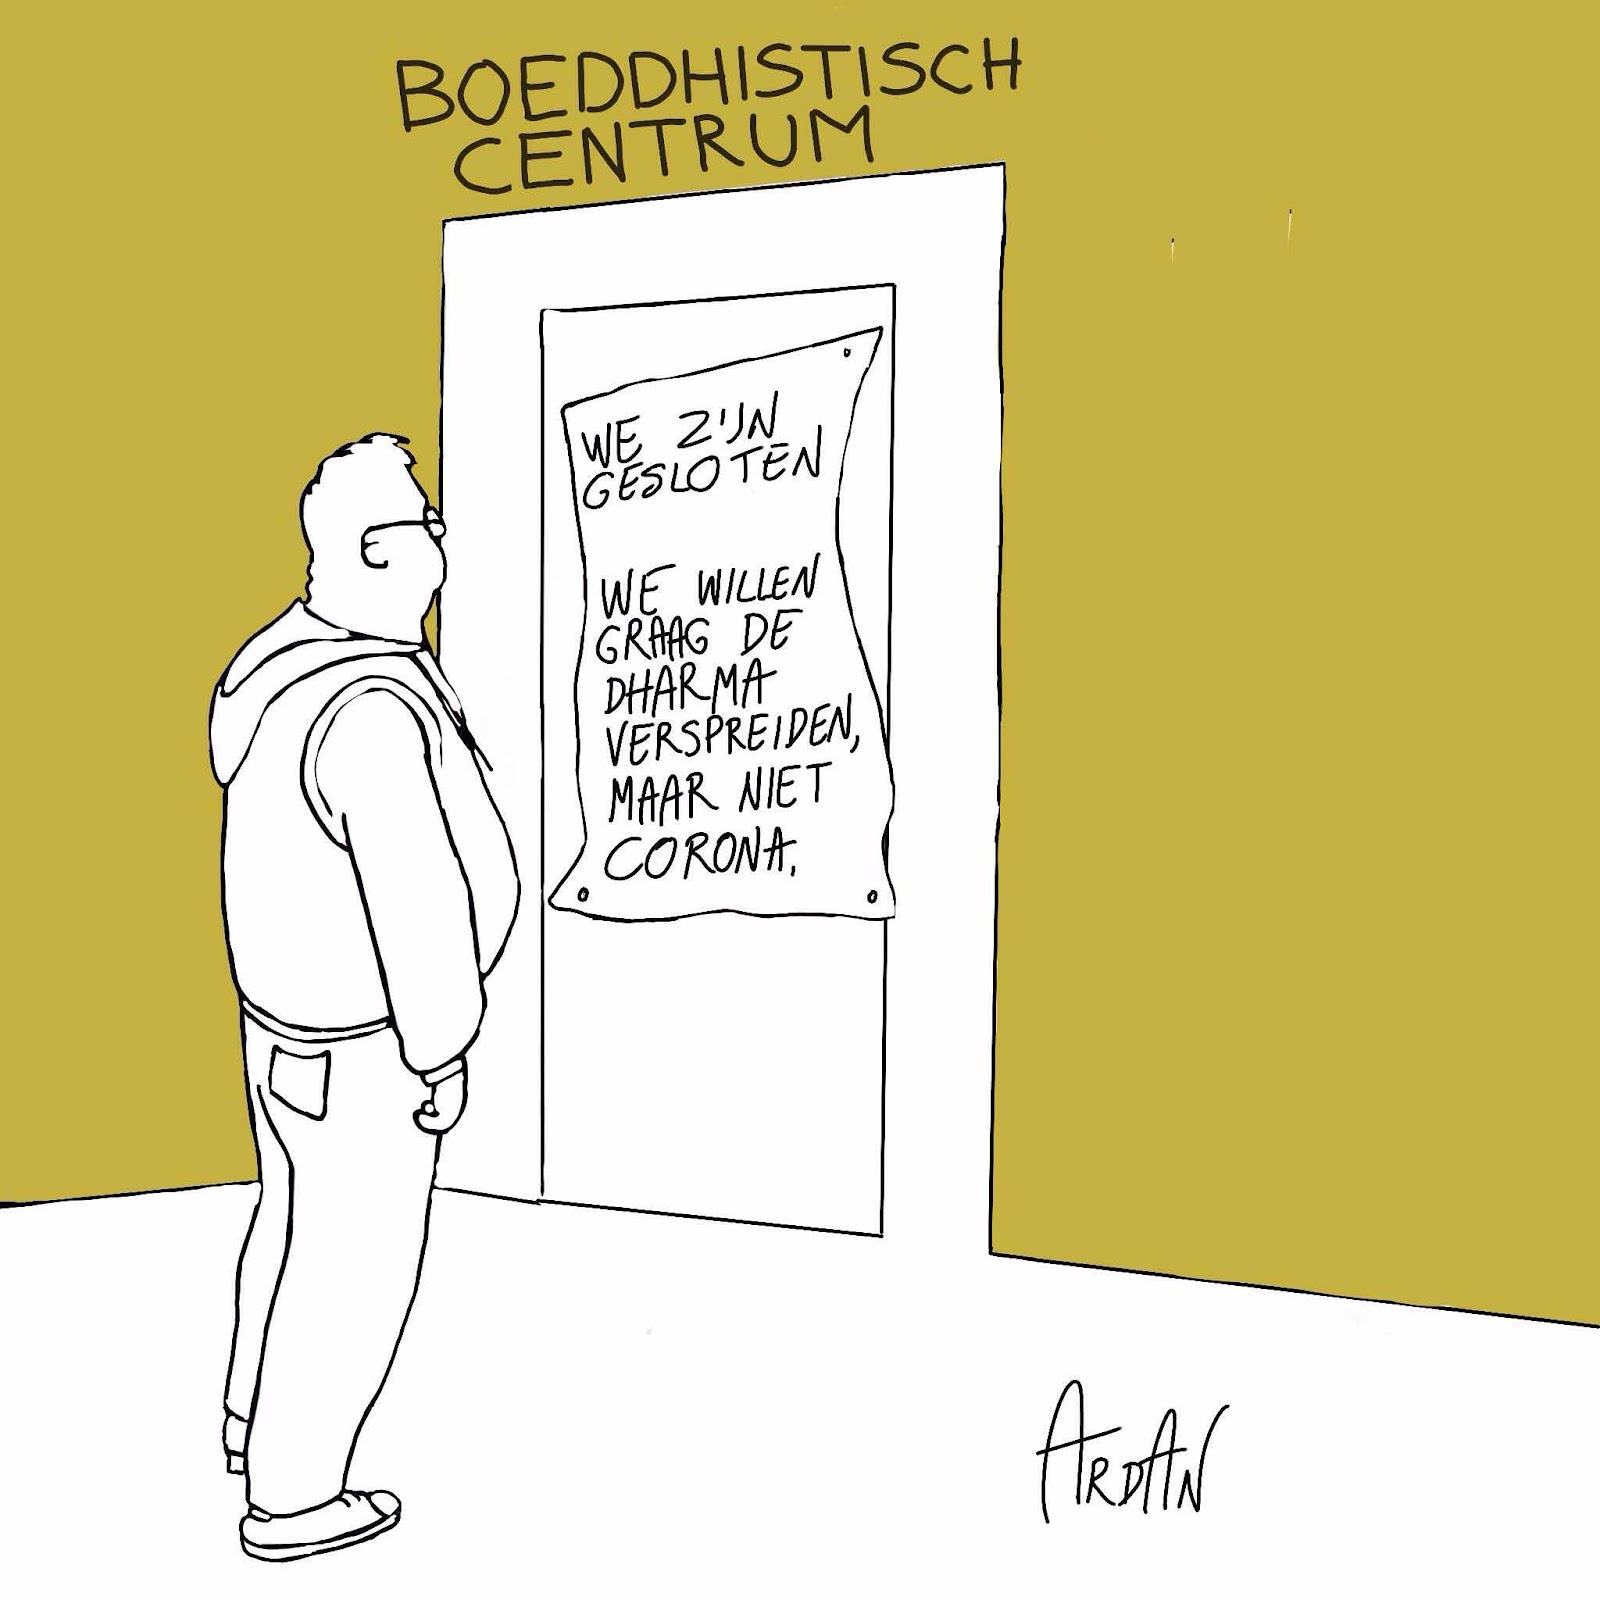 BOEDDHISTISCH
CENTRUM
WE ZIJN
GESLOTEN
WE WILLEN
GRAAG DE
DHARMA
VERSPREIDEN,
MAAR NIET
CORONA.
ARDAN